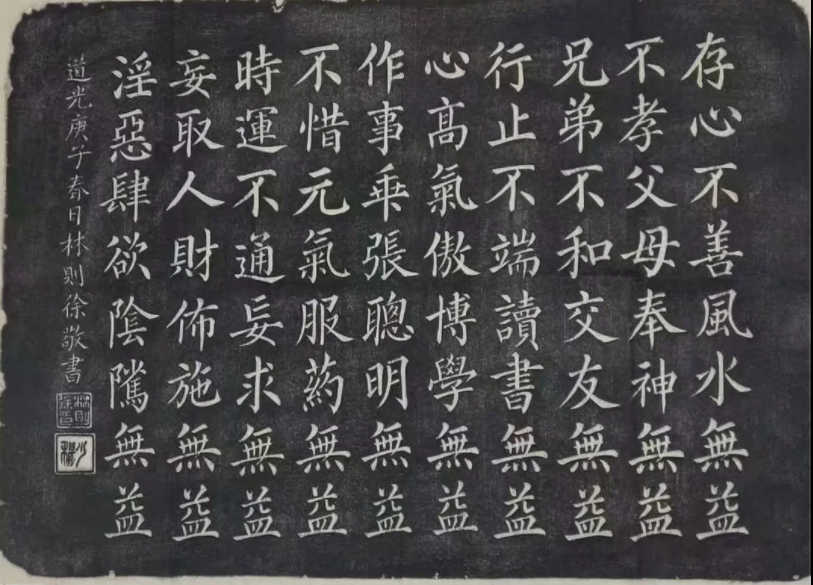 存心不善風水無益
不孝父母奉神無益
兄弟不和交友無益
行止不端讀書無益
心高氣傲博學無益
作事乗張聰明無益
不惜元氣服药無益
時運不通妄求無益
妄取人財佈施無益
淫惡肆欲陰隲無益
道光庚子春日林則徐敬書